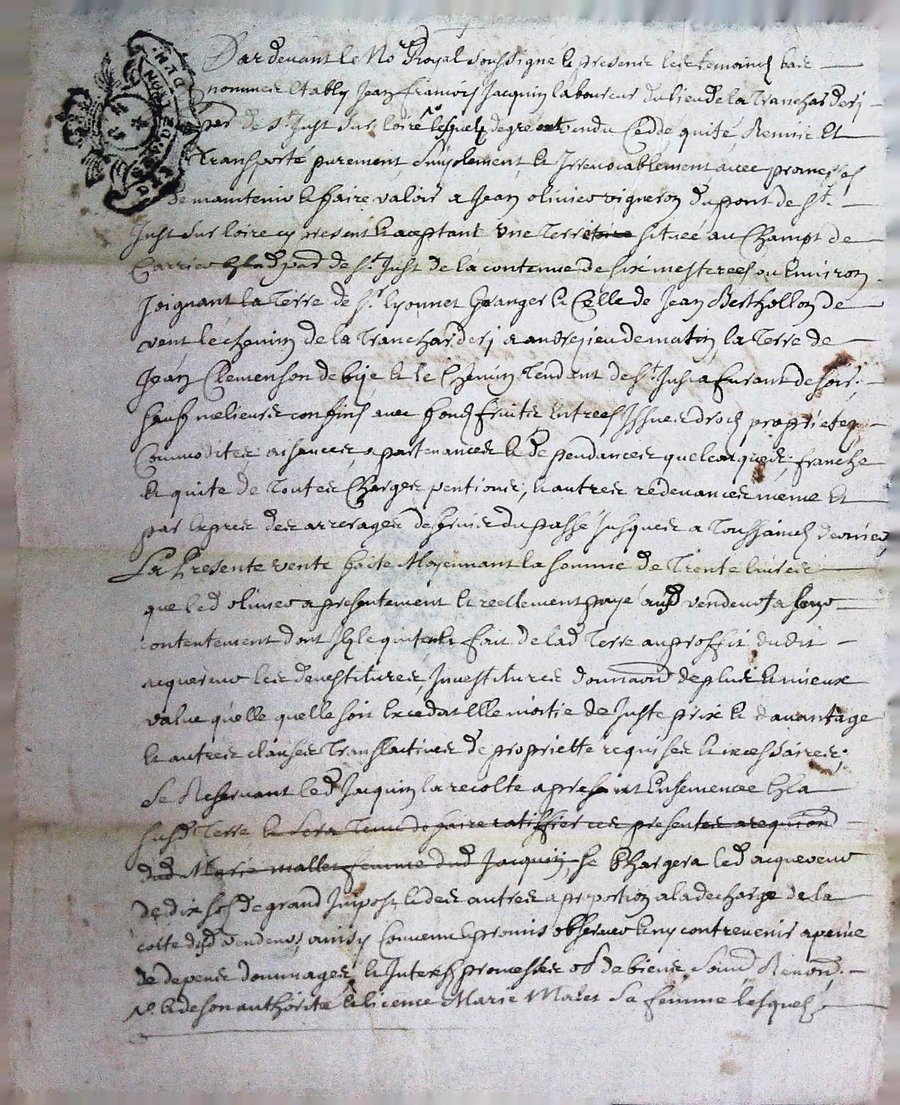 Par devant le No.re Royal soussigne et presents les temoins bas
nommes Estably Jean francois Jacquin laboureur du lieu de la Trancharderj
par de st Just sur loire lesquels de gre ont vendu Cedde quité Remis et
transporté purement, simplement, et Irrevocablement avec promesses
de maintenir et faire valoir a Jean olivier vigneron du pont de st.
Just sur loire cy present et acceptant une Terre située au Champt de
Carrier par de st Just de la contenue de six mesterees ou Environ
Joignant la Terre de Sr Lyonnet Granger et Celle de Jean Berthollon de
vent le chemin de la Tranchardery a de matin la Terre de
Jean Clemenson de bije et le Chemin Tendant de st Just a furant de soir
sauf melieurs confins avec fonds fruits Entrees Issues droits proprietes
Commodites aisances, apartenances et dependances quelcoques; franche
et quite de Toutes Charges pentions, et autres redevances meme et
par expres des arrerages d'jceux du passé Jusques a Toussaincts dernier,
La Presente vente faite Moyennant la somme de Trente livres
que led olivier a presentement et reellement payé aud vendeur a leur
contentement dont Ils le quittent fait de lad Terre au proffit dudit
acquereur les devestitures, Investitures donnaons de plus et mieux
value quelle quelle soit Exceda t Elle moitie de Juste prix et davantage
et autres clauses Translactives de propriette requises et necessaires;
Se Reservant led Jacquin la recolte a present Ensemencee En la
susd Terre et sera Tenu de faire ratiffier ces presentes a requion
dud Marie mallet femme dud Jacquin, se Chargera led acquereur
de dix sols de grand Impost et des autres a proportion a la decharge de la
cotte dud vendeur, ainsy Convenu et promis observer et ny contrevenir a peine
de depens dommages et Interets promesses ob de biens, soud Renond.
et de son authorité et licence Marie Malet sa femme lesquels